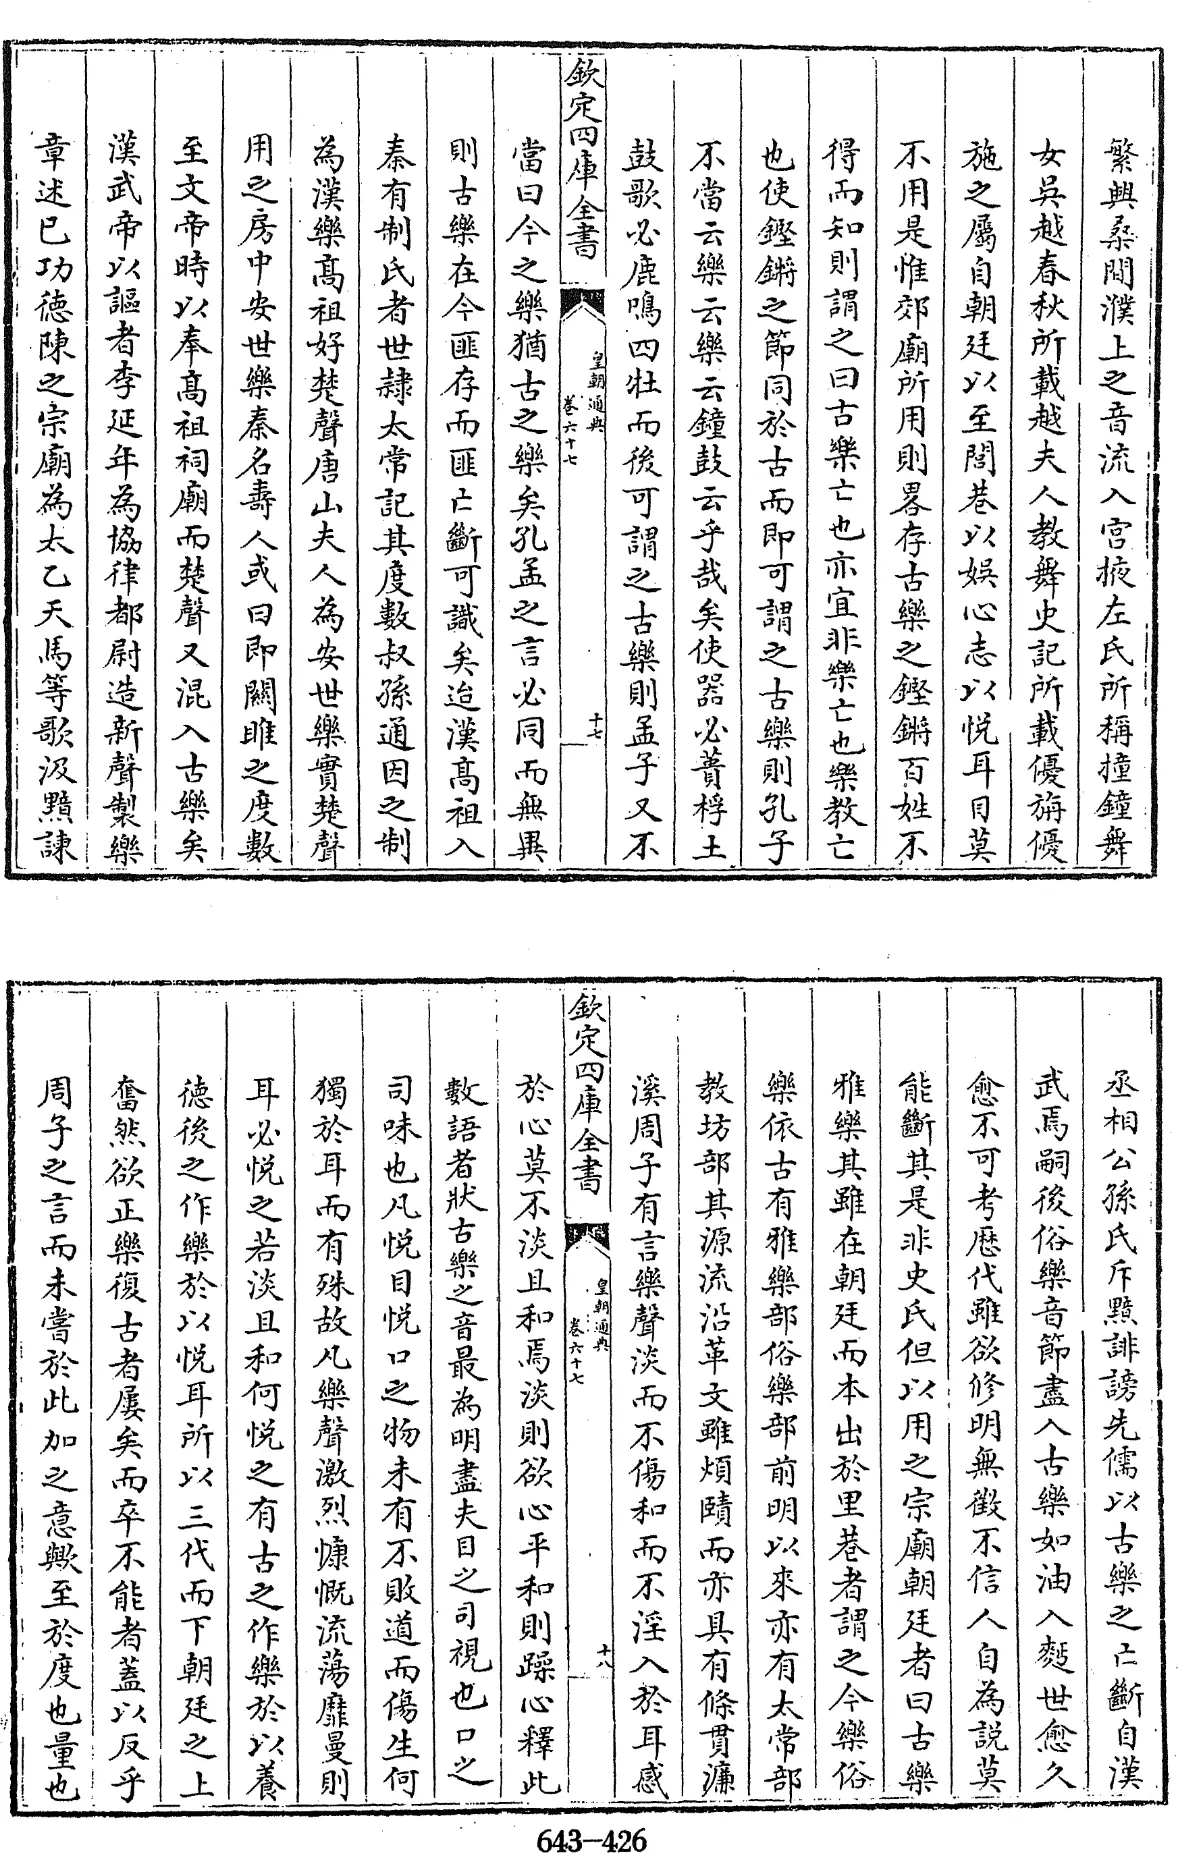 繁興桑間濮上之音流入宫掖左氏所稱撞鐘舞
女吳越春秋所載越夫人教舞史記所載優旃優
施之屬自朝廷以至閭巷以娱心志以悦耳目莫
不用是惟郊廟所用則畧存古樂之鏗鏘百姓不
得而知則謂之曰古樂亡也亦宜非樂亡也樂教亡
也使鏗鏘之節同於古而即可謂之古樂則孔子
不當云樂云樂云鐘鼓云乎哉矣使器必蕢桴土
鼓歌必鹿鳴四牡而後可謂之古樂則孟子又不
欽定四庫全書
皇朝通典
卷六十七
十七
當曰今之樂猶古之樂矣孔孟之言必同而無異
則古樂在今匪存而匪亡斷可識矣迨漢髙祖入
秦有制氏者世隸太常記其度數叔孫通因之制
為漢樂髙祖好楚聲唐山夫人為安世樂實楚聲
用之房中安世樂秦名壽人或曰即關雎之度數
至文帝時以奉髙祖祠廟而楚聲又混入古樂矣
漢武帝以謳者李延年為協律都尉造新聲製樂
章述已功徳陳之宗廟為太乙天馬等歌汲黯諫
丞相公孫氏斥黯誹謗先儒以古樂之亡斷自漢
武焉嗣後俗樂音節盡入古樂如油入麪世愈久
愈不可考歴代雖欲修明無徵不信人自為説莫
能斷其是非史氏但以用之宗廟朝廷者曰古樂
雅樂其雖在朝廷而本出於里巷者謂之今樂俗
樂依古有雅樂部俗樂部前明以來亦有太常部
教坊部其源流沿革文雖煩賾而亦具有條貫濂
溪周子有言樂聲淡而不傷和而不淫入於耳感
欽定四庫全書
皇朝通典
卷六十七
十八
於心莫不淡且和焉淡則欲心平和則躁心釋此
數語者狀古樂之音最為明盡夫目之司視也口之
司味也凡悦目悦口之物未有不敗道而傷生何
獨於耳而有殊故凡樂聲激烈慷慨流蕩靡曼則
耳必悦之若淡且和何悦之有古之作樂於以養
徳後之作樂於以悦耳所以三代而下朝廷之上
奮然欲正樂復古者屢矣而卒不能者蓋以反乎
周子之言而未嘗於此加之意歟至於度也量也
643-426